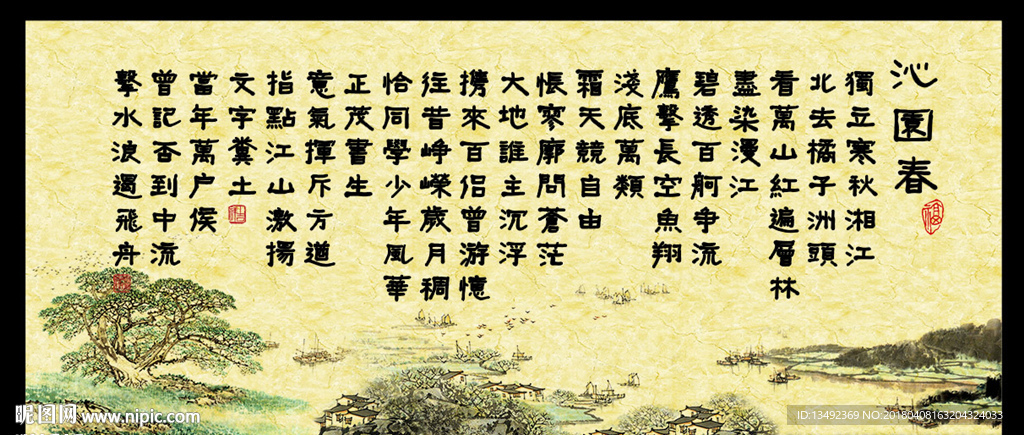 沁園春
獨立寒秋湘江
北去橘子洲頭
看萬山紅遍層林
盡染漫江
碧透百舸争流
鷹擊長空魚翔
淺底萬類
霜天競自由
悵寥廓問蒼茫
大地誰主沉浮
攜來百侶曾游憶
往昔崢嶸歲月稠
恰同學少年風華
正茂書生
意氣揮斥方遒
指點江山激揚
文字糞土
當年萬户侯
曾記否到中流
擊水浪遏飛舟
昵图网 www.nipic.com
ID:13492369 NO:20180408163204324033